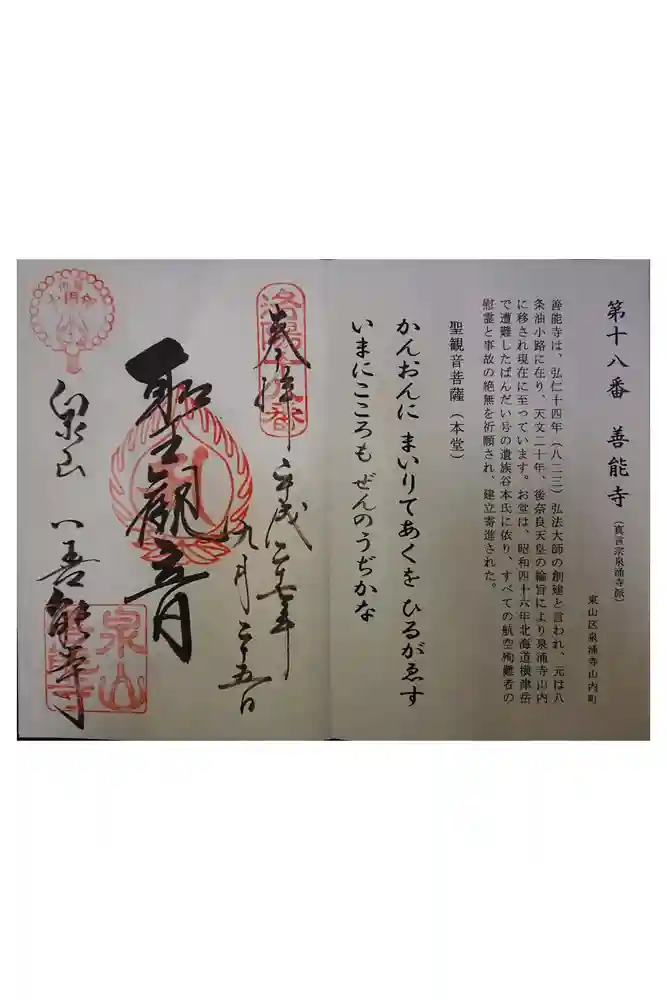 第十八番　善能寺（真言宗泉涌寺派）
東山区泉涌寺山内町
善能寺は、弘仁十四年（八二三）弘法大師の創建と言われ、元は八
条油小路に在り、天文二十年、後奈良天皇の綸旨により泉涌寺山内
に移され現在に至っています。お堂は、昭和四十六年北海道横津岳
で遭難したばんだい号の遺族谷本氏に依り、すべての航空殉難者の
慰霊と事故の絶無を祈願され、建立寄進された。
聖観音菩薩（本堂）
かんおんに　まいりてあくを　ひるがゑす
いまにこころも　ぜんのうぢかな
奉拝
平成二十七年
九月二十五日
聖観音
泉山　善能寺
泉山
善能寺